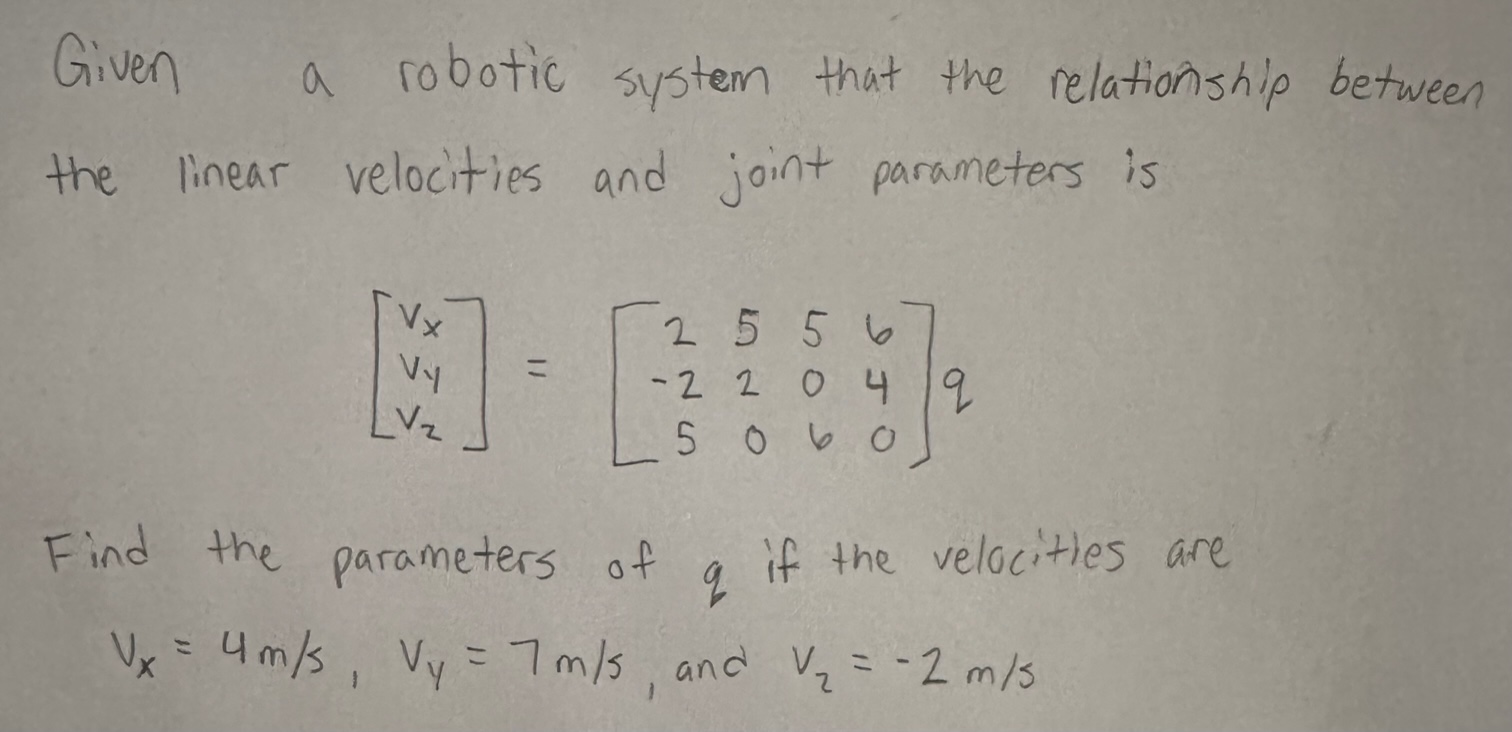 Given a robotic system that the relationship between
the linear velocities and joint parameters is
[Vx Vy Vz] = [2 5 5 6; -2 2 0 4; 5 0 6 0] q
Find the parameters of q if the velocities are
Vx = 4 m/s, Vy = 7 m/s, and Vz = -2 m/s